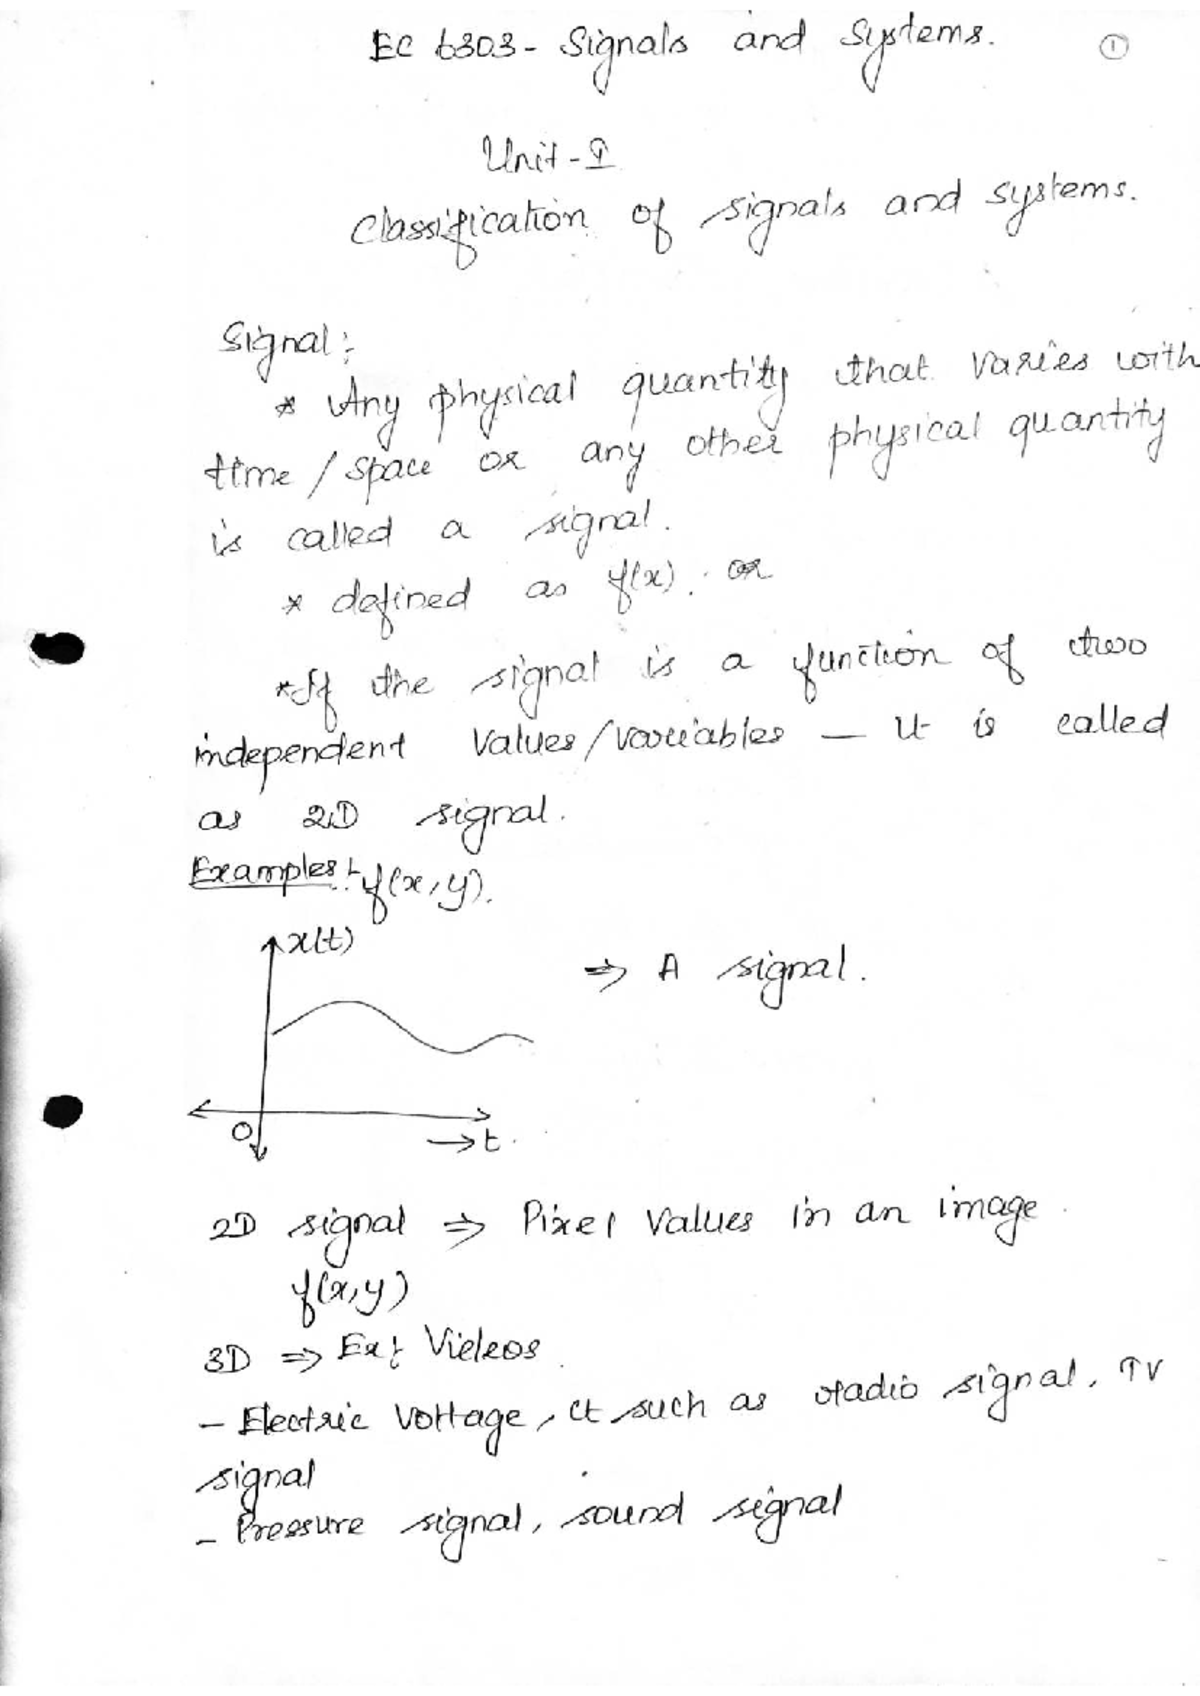 EC 6303 - Signals and Systems. 1
Unit - I
Classification of signals and systems.
Signal :-
* Any physical quantity that varies with
time / space or any other physical quantity
is called a signal.
* defined as f(x). or
* If the signal is a function of two
independent values/variables — it is called
as 2D signal.
Examples :- f(x,y).
x(t)
⇒ A signal.
0
→ t.
2D signal ⇒ Pixel values in an image.
f(x,y)
3D ⇒ Ex: Videos.
- Electric voltage, ct such as radio signal, TV
signal
- Pressure signal, sound signal